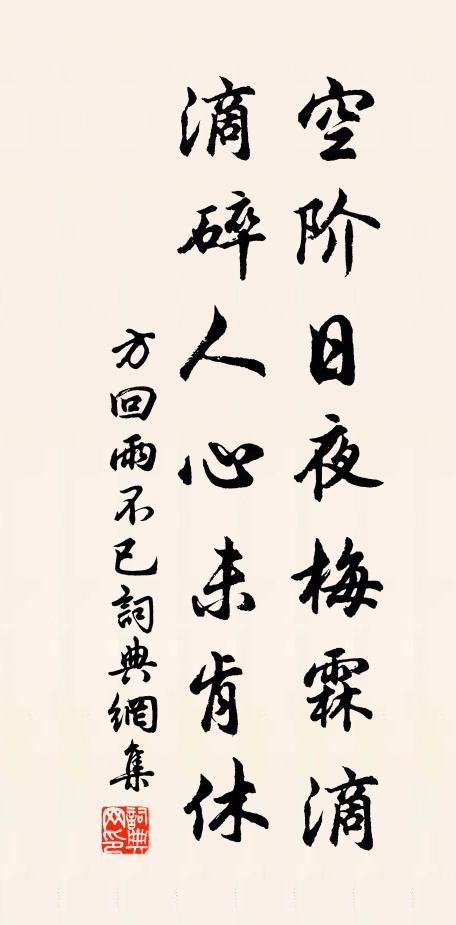 空阶日夜梅霖滴
滴碎人心未肯休
方回雨不已詞典網集
詞典网印